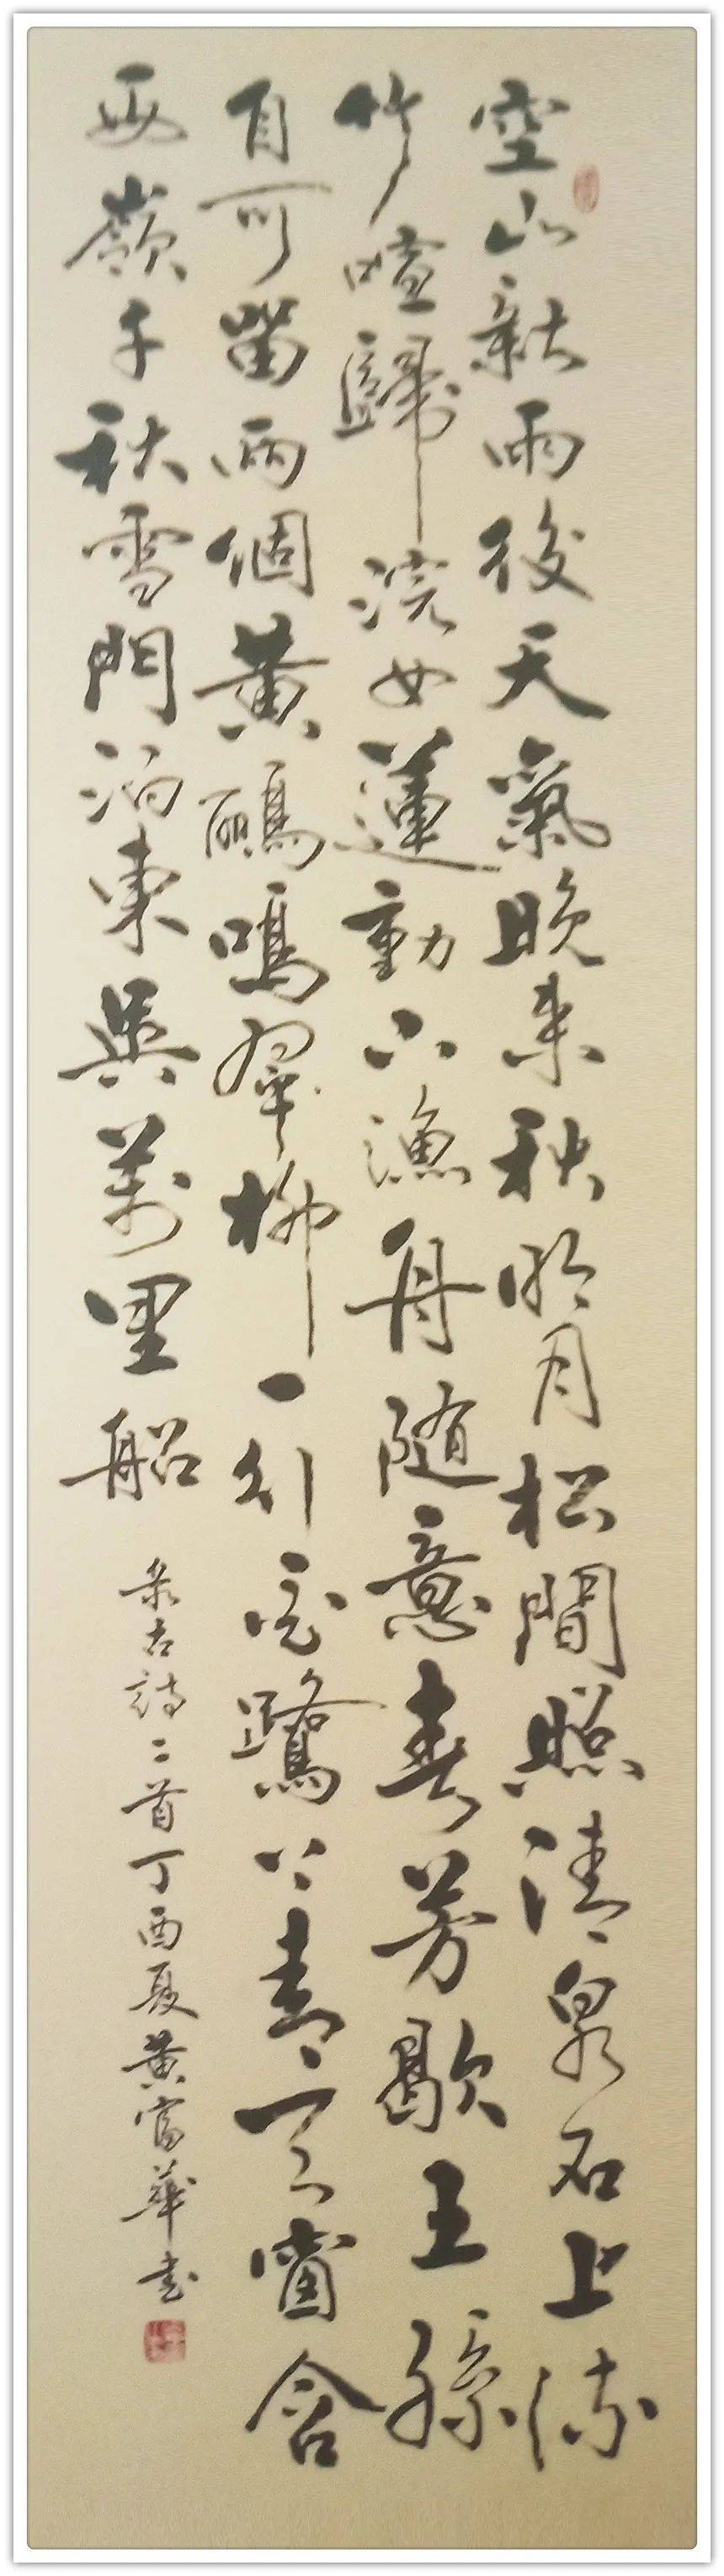 空山新雨後天氣晚來秋明月松間照清泉石上流
竹喧歸浣女蓮動下漁舟隨意春芳歇王孫
自可留兩個黃鸝鳴翠柳一行白鷺上青天窗含
西嶺千秋雪門泊東吳萬里船
录古詩二首丁酉夏黃富華书